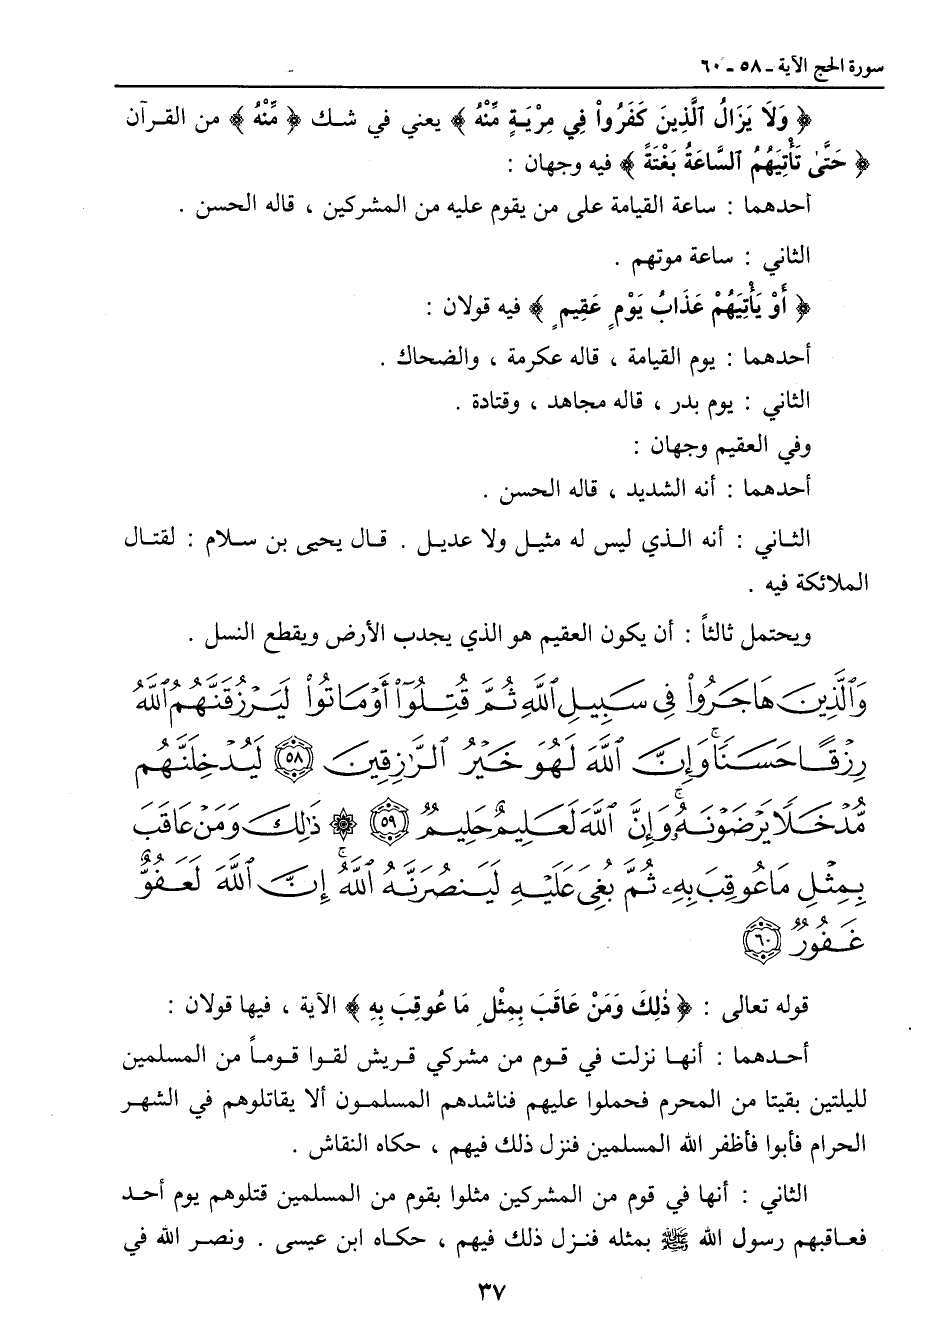 سورة الحج الآية ـ ٥٨ ـ ٦٠
﴿ وَلَا يَزَالُ ٱلَّذِينَ كَفَرُواْ فِي مِرْيَةٍ مِّنْهُ ﴾ يعني في شك ﴿ مِّنْهُ ﴾ من القرآن
﴿ حَتَّىٰ تَأْتِيَهُمُ ٱلسَّاعَةُ بَغْتَةً ﴾ فيه وجهان :
أحدهما : ساعة القيامة على من يقوم عليه من المشركين ، قاله الحسن .
الثاني : ساعة موتهم .
﴿ أَوْ يَأْتِيَهُمْ عَذَابُ يَوْمٍ عَقِيمٍ ﴾ فيه قولان :
أحدهما : يوم القيامة ، قاله عكرمة ، والضحاك .
الثاني : يوم بدر ، قاله مجاهد ، وقتادة .
وفي العقيم وجهان :
أحدهما : أنه الشديد ، قاله الحسن .
الثاني : أنه الذي ليس له مثيل ولا عديل . قال يحيى بن سلام : لقتال
الملائكة فيه .
ويحتمل ثالثاً : أن يكون العقيم هو الذي يجدب الأرض ويقطع النسل .
وَٱلَّذِينَ هَاجَرُواْ فِي سَبِيلِ ٱللَّهِ ثُمَّ قُتِلُوٓاْ أَوْ مَاتُواْ لَيَرْزُقَنَّهُمُ ٱللَّهُ
رِزْقًا حَسَنًا ۚ وَإِنَّ ٱللَّهَ لَهُوَ خَيْرُ ٱلرَّٰزِقِينَ ٥٨ لَيُدْخِلَنَّهُم
مُّدْخَلًا يَرْضَوْنَهُۥ ۚ وَإِنَّ ٱللَّهَ لَعَلِيمٌ حَلِيمٌ ٥٩ ۞ ذَٰلِكَ وَمَنْ عَاقَبَ
بِمِثْلِ مَا عُوقِبَ بِهِۦ ثُمَّ بُغِيَ عَلَيْهِ لَيَنصُرَنَّهُ ٱللَّهُ ۚ إِنَّ ٱللَّهَ لَعَفُوٌّ
غَفُورٌ ٦٠
قوله تعالى : ﴿ ذَٰلِكَ وَمَنْ عَاقَبَ بِمِثْلِ مَا عُوقِبَ بِهِ ﴾ الآية ، فيها قولان :
أحدهما : أنها نزلت في قوم من مشركي قريش لقوا قوماً من المسلمين
لليلتين بقيتا من المحرم فحملوا عليهم فناشدهم المسلمون ألا يقاتلوهم في الشهر
الحرام فأبوا فأظفر الله المسلمين فنزل ذلك فيهم ، حكاه النقاش .
الثاني : أنها في قوم من المشركين مثلوا بقوم من المسلمين قتلوهم يوم أحد
فعاقبهم رسول الله ﷺ بمثله فنزل ذلك فيهم ، حكاه ابن عيسى . ونصر الله في
٣٧